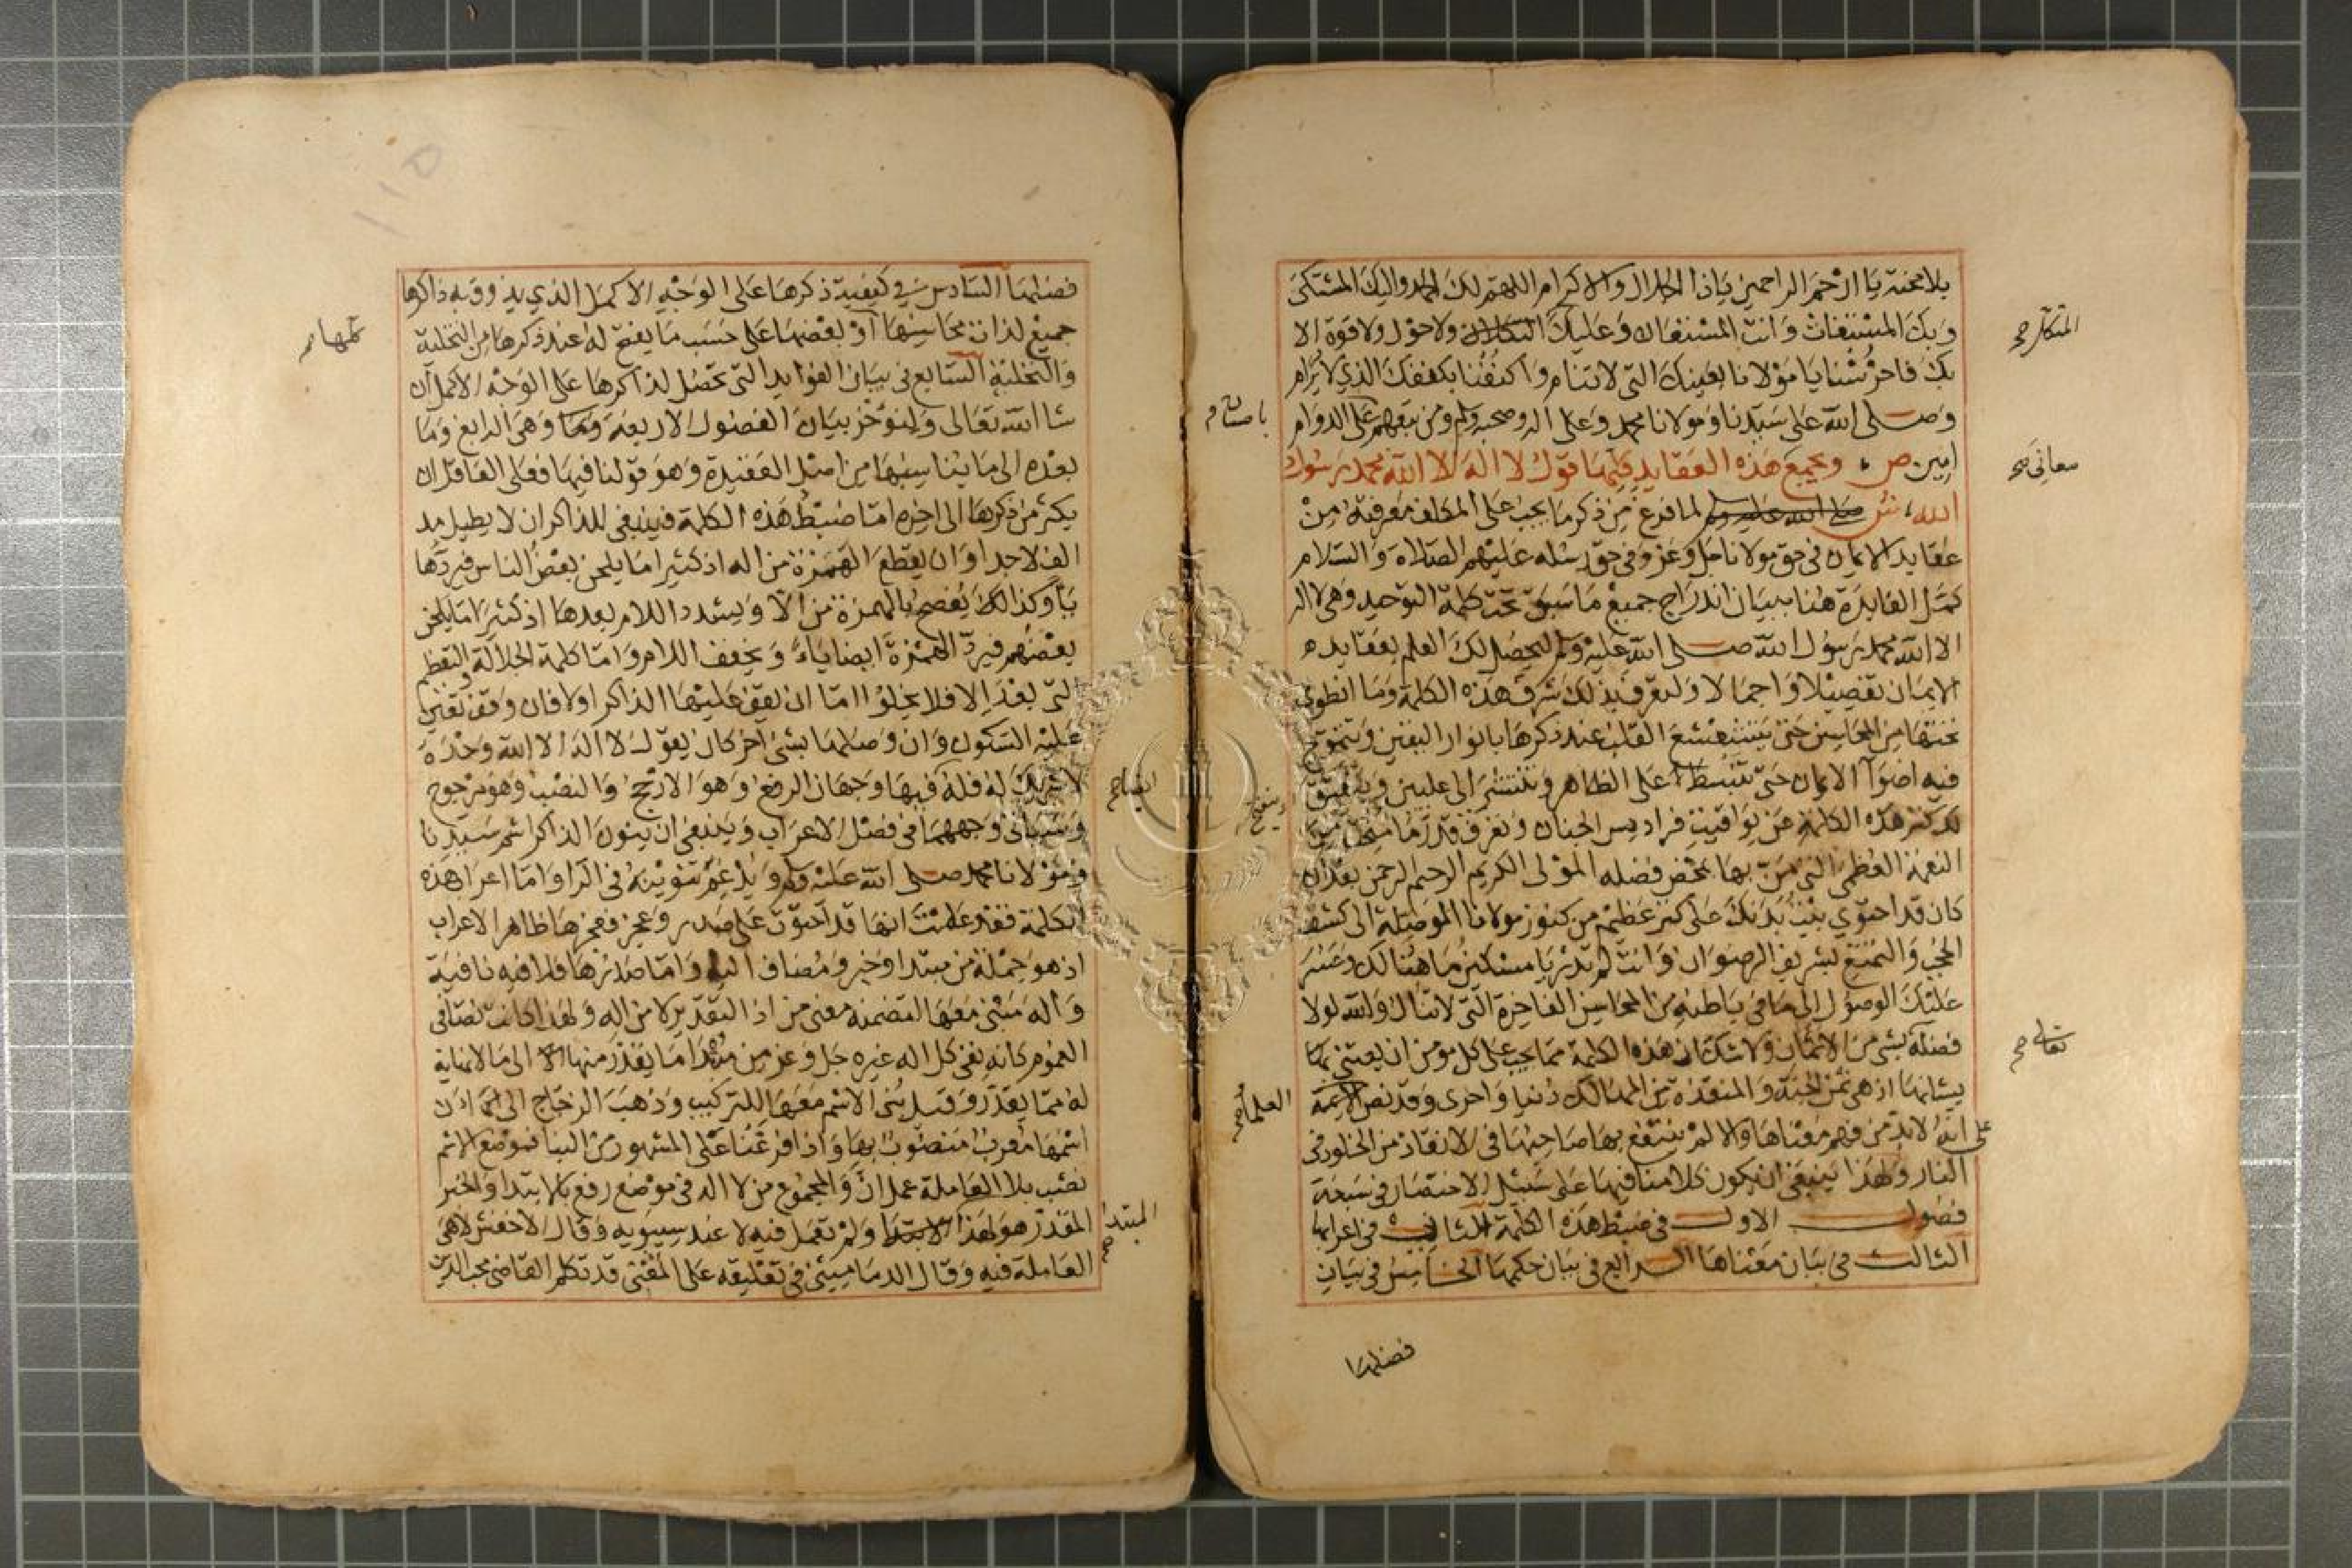 بلا محنة يا ارحم الراحمين يا ذا الجلال والاكرام اللهم لك الحمد واليك المشتكى
وبك المستغاث وانت المستعان وعليك التكلان ولا حول ولا قوة الا
المتكل صح
بك فاحرسنا يا مولانا بعينك التى لا تنام واكنفنا بكنفك الذي لا يرام
وصلى الله على سيدنا ومولانا محمد وعلى اله وصحبه وسلم ومن تبعهم على الدوام
امين ص ويجمع هذه العقايد كلها قول لا اله الا الله محمد رسول
معاني صح
الله ش صلى الله عليه وسلم لما فرغ من ذكر ما يجب على المكلف معرفته من
عقايد الايمان في حق مولانا جل وعز وفى حق رسله عليهم الصلاة والسلام
كمل الفايدة هنا ببيان اندراج جميع ما سبق تحت كلمة التوحيد وهى لا اله
الا الله محمد رسول الله صلى الله عليه وسلم ليحصل لك العلم بعقايد
الايمان تفصيلا واجمالا ولتعرف بذلك شرف هذه الكلمة وما انطوى
تحتها من المحاسن حتى يتشعشع القلب عند ذكرها بانوار اليقين ويتموج
فيه اضوا الايمان حتى تنبسط على الظاهر وتنتشر الى عليين
هذه الكلمة عن يواقيت فراديس الجنان وتعرف قدر ما
النعمة العظمى التى من بها بمحض فضله المولى الكريم الرحيم الرحمن بعد ان
كان قد احتوي بيت بدنك على كنز عظيم من كنوز مولانا الموصلة الى كشف
الحجب والتمتع بشريف الرضوان وانت لم تدر يا مسكين ما هنالك وعسر
عليك الوصول الى ما في باطنه من المحاسن الفاخرة التى لا تنال والله لولا
فضله بشى من الاثمان ولا شك ان هذه الكلمة مما يجب على كل مومن ان يعتنى
تعالى صح
بشانها اذ هى ثمن الجنة والمنقذة من المهالك دنيا واخرى وقد نص الايمة
العلما صح
على انه لابد من فهم معناها والا لم ينتفع بها صاحبها في الانقاذ من الخلود فى
النار ولهذا ينبغى ان يكون كلامنا فيها على سبيل الاختصار فى سبعة
فصول الاول فى ضبط هذه الكلمة الثانى فى اعرابها
الثالث فى بيان معناها الرابع فى بيان حكمها الخامس فى بيان
فضلها
فضلها السادس فى كيفية ذكرها على الوجه الاكمل الذي يذوق به ذاكرها
جميع لذات محاسنها او بعضها على حسب ما يفتح له عند ذكرها من التخلية
والتحلية السابع فى بيان الفوايد التى تحصل لذاكرها على الوجه الاكمل ان
شا الله تعالى ولنوخر بيان الفصول الاربعة وهى الرابع وما
بعده الى ما يناسبها من اصل العقيدة وهو قولنا فيها فعلى العاقل ان
يكثر من ذكرها الى اخره اما ضبط هذه الكلمة فينبغى للذاكر ان لا يطيل مد
الف لا جدا وان يقطع الهمزة من اله اذ كثيرا ما يلحن بعض الناس فيردها
يا وكذالك يفصح بالهمزة من الا ويشدد اللام بعدها اذ كثيرا ما يلحن
بعضهم فيرد الهمزة ايضا ياء ويخفف اللام واما كلمة الجلالة
التى بعد الا فلا يخلوا اما ان يقف عليها الذاكر اولا فان وقف تعين
عليه السكون وان وصلها بشئ اخر كان يقول لا اله الا الله وحده
لا شريك له فله فيها وجهان الرفع وهو الارجح والنصب وهو مرجوح
ايضا صح
وسياتى وجههما فى فصل الاعراب وينبغى ان ينون الذاكر اسم سيدنا
ومولانا محمد صلى الله عليه وسلم ويدغم تنوينه فى الرا واما اعراب هذه
الكلمة فقد علمت انها قد احتوت على صدر وعجز فعجزها ظاهر الاعراب
اذ هو جملة من مبتدا وخبر ومضاف اليه واما صدرها فلا فيه نافية
واله مبنى معها لتضمنه معنى من اذ التقدير لا من اله ولهذا كانت نصا فى
العموم كانه نفى كل اله غيره جل وعز من مبدا ما يقدر منها الى ما لا نهاية
له مما يقدر وقيل بنى الاسم معها للتركيب وذهب الزجاج الى ان
اسمها معرب منصوب بها واذا فرغنا على المشهور من البنا فموضع الاسم
نصب بلا العاملة عمل ان والمجموع من لا اله فى موضع رفع بالابتدا والخبر
المقدر هو لهذا الابتدا ولم تعمل فيه لا عند سيبويه وقال الاخفش لا هى
المبتدا صح
العاملة فيه وقال الدمامينى فى تعليقه على المغنى قد تكلم القاضى محب الدين